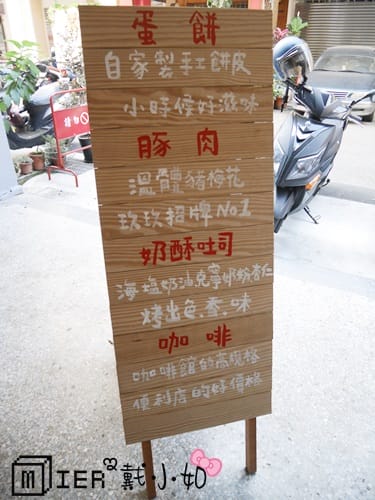 蛋餅
自家製手工餅皮
小時候好滋味
豚肉
溫體豬梅花
玖玖招牌No1
奶酥吐司
海塩奶油克寧奶粉杏仁
烤出色.香.味
咖啡
咖啡館的高規格
便利店的好價格
MIER²戴.小.如